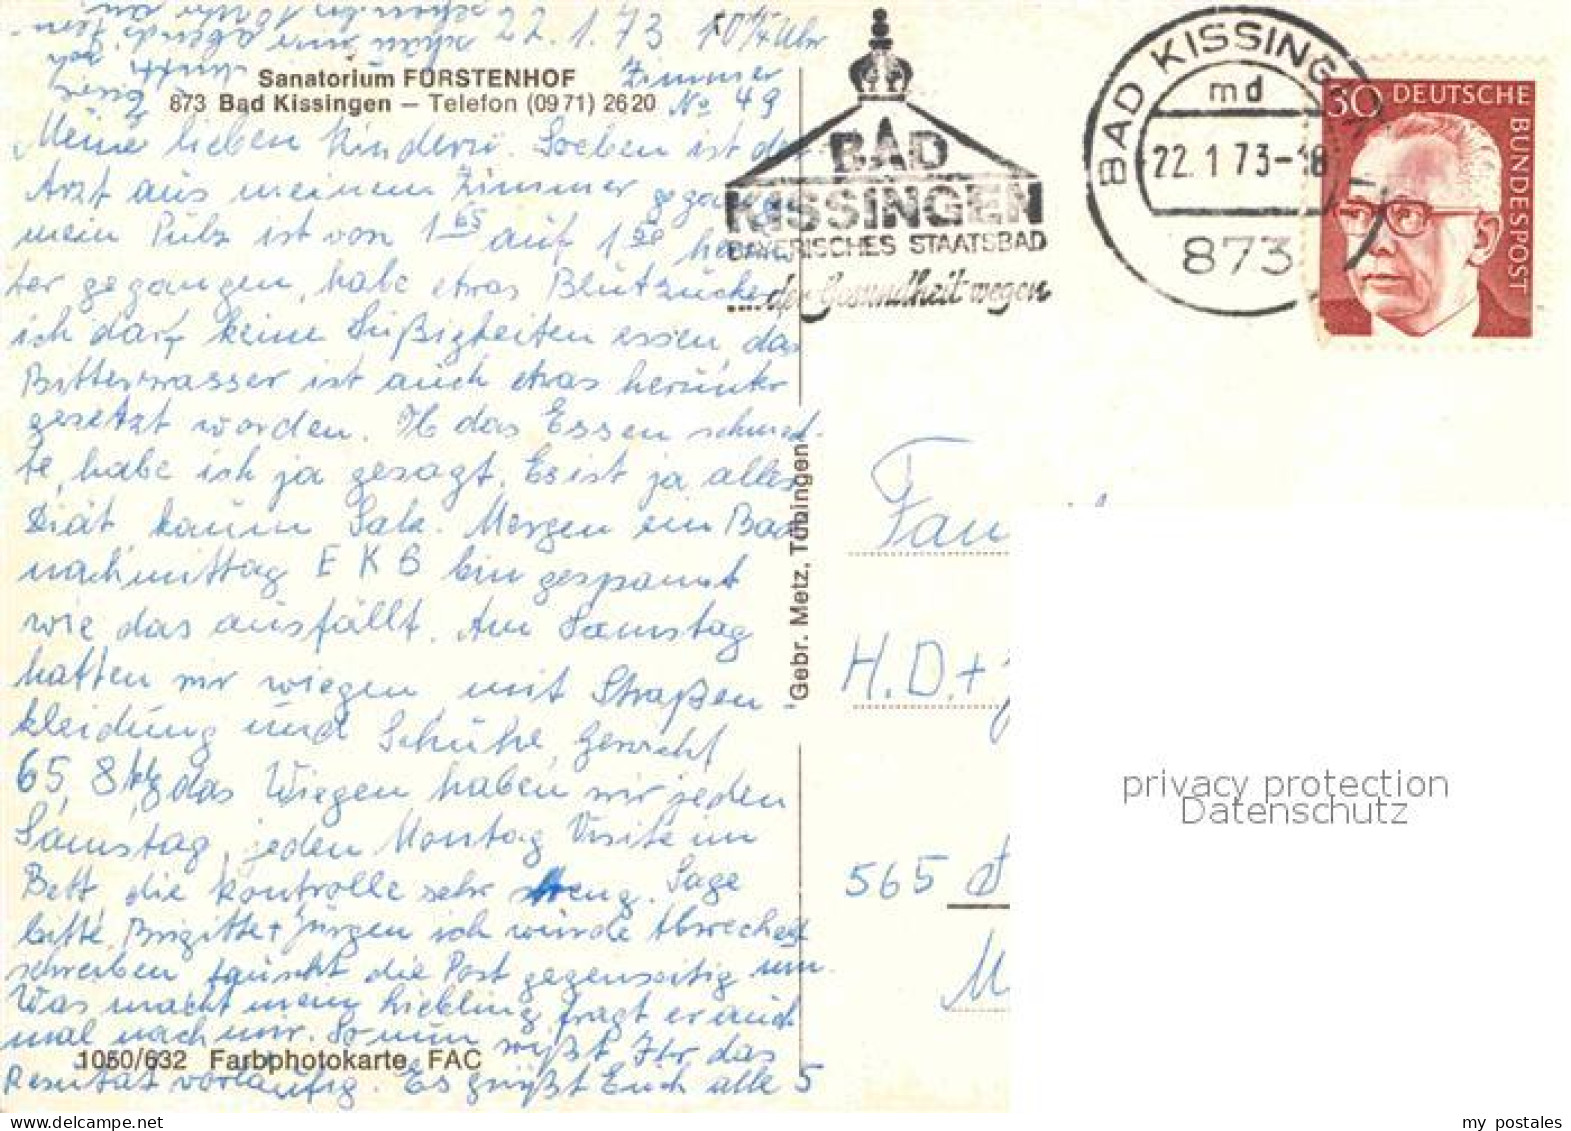 22.1.73 10¼ Uhr
Sanatorium FÜRSTENHOF
Zimmer
873 Bad Kissingen — Telefon (09 71) 26 20
No 49
Meine lieben Kinder. Soeben ist der
Arzt aus meinem Zimmer gegangen
mein Puls ist von 1 65 auf 1 50 herun
ter gegangen, habe etwas Blutzucker
ich darf keine Süßigkeiten essen, das
Bitterwasser ist auch etwas herunter
gesetzt worden. Ob das Essen schmeck-
te, habe ich ja gesagt. Es ist ja alles
Diät kaum Salz. Morgen ein Bad
nachmittag E K G bin gespannt
wie das ausfällt. Am Samstag
hatten wir wiegen mit Straßen
kleidung und Schuhe, Gewicht
65,8 kg das Wiegen haben wir jeden
Samstag, jeden Montag Visite im
Bett, die Kontrolle sehr streng. Sage
bitte, Brigitte + Jürgen ich würde Abwechselt
schreiben tauscht die Post gegenseitig um.
Was macht mein Liebling, fragt er auch
mal nach mir. So nun wißt Ihr das
1050/632 Farbphotokarte FAC
Resultat vorläufig. Es grüßt Euch alle 5
Gebr. Metz, Tübingen
BAD
KISSINGEN
BAYERISCHES STAATSBAD
... der Gesundheit wegen
BAD KISSINGEN
md
22.1.73-18
873
30 DEUTSCHE
BUNDESPOST
Fam
H. D. +
565
privacy protection
Datenschutz
my postales